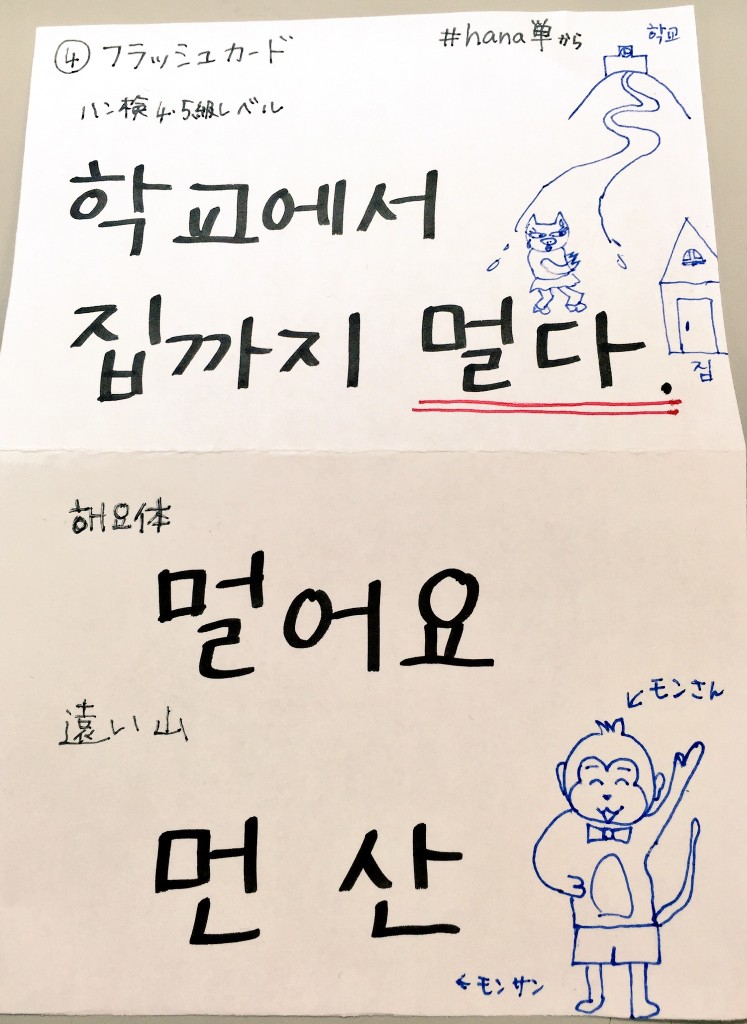 ④ フラッシュカード
#hana単から
ハン検4・5級レベル
학교
학교에서
집까지 멀다.
집
해요体
멀어요
遠い山
モンさん
먼 산
←モンサン